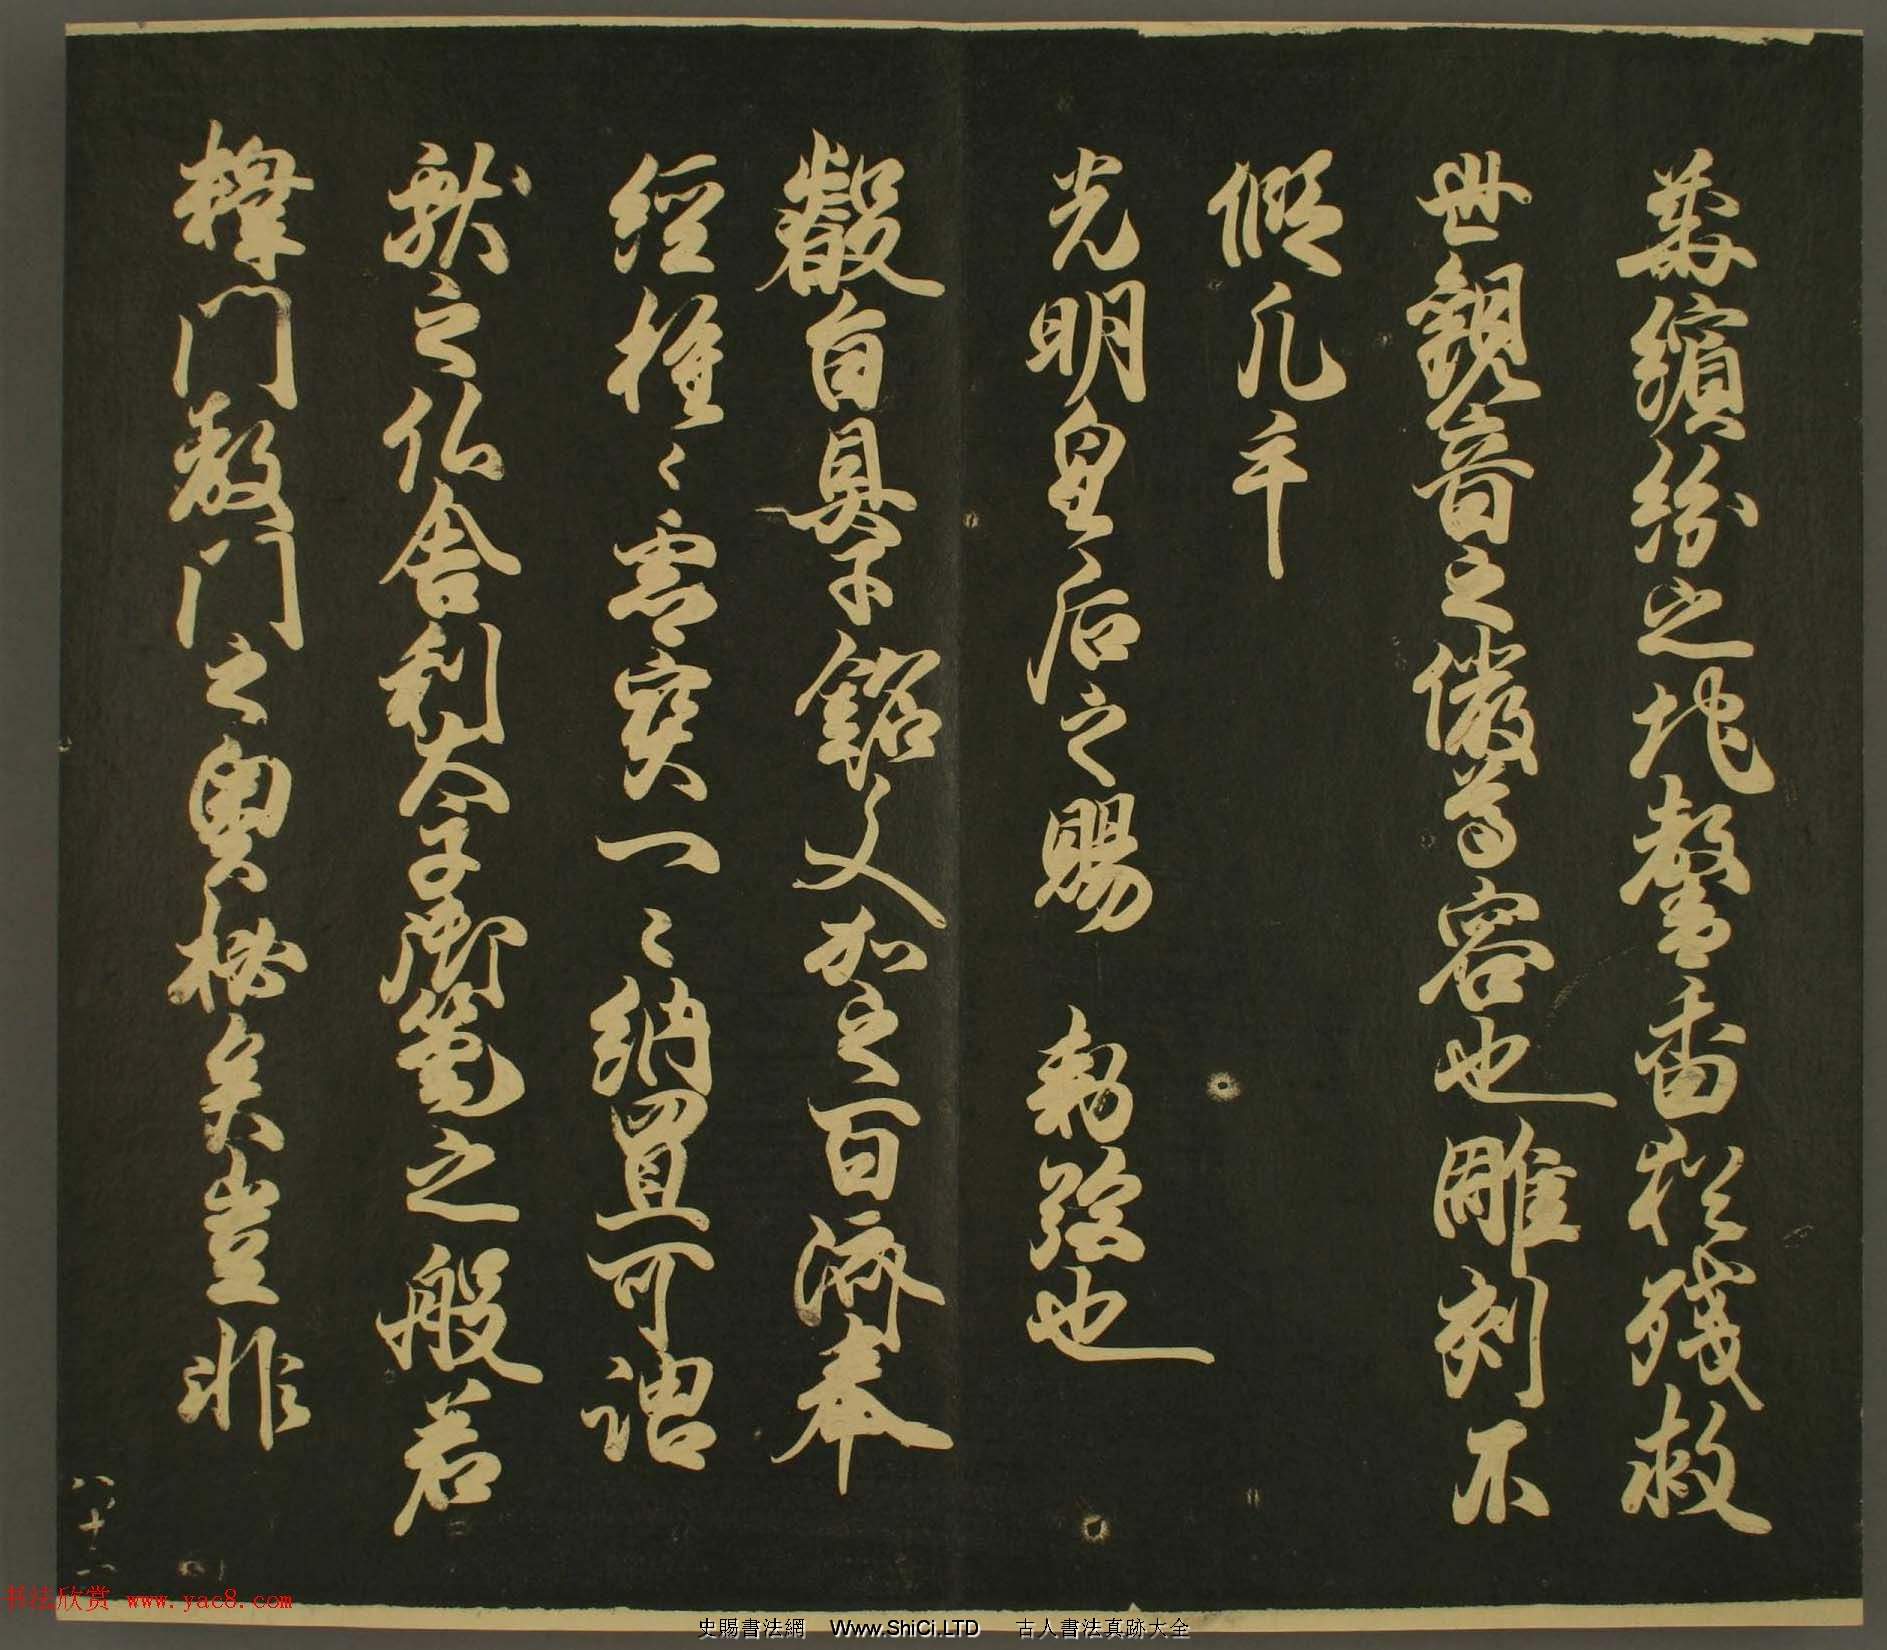 華繽紛之地馨香猶殘救
世觀音之儼尊容也雕刻不
似凡手
光明皇后之賜 勅弦也
自具子銘文加之百濟奉
經種々霊寶一々納置可謂
献之仏舎利太子御筆之般若
釋門教門之奥秘矣豈非
八ノ十一
书法欣赏 www.yac8.com
史賜書法網 Www.ShiCi.LTD 古人書法真跡大全